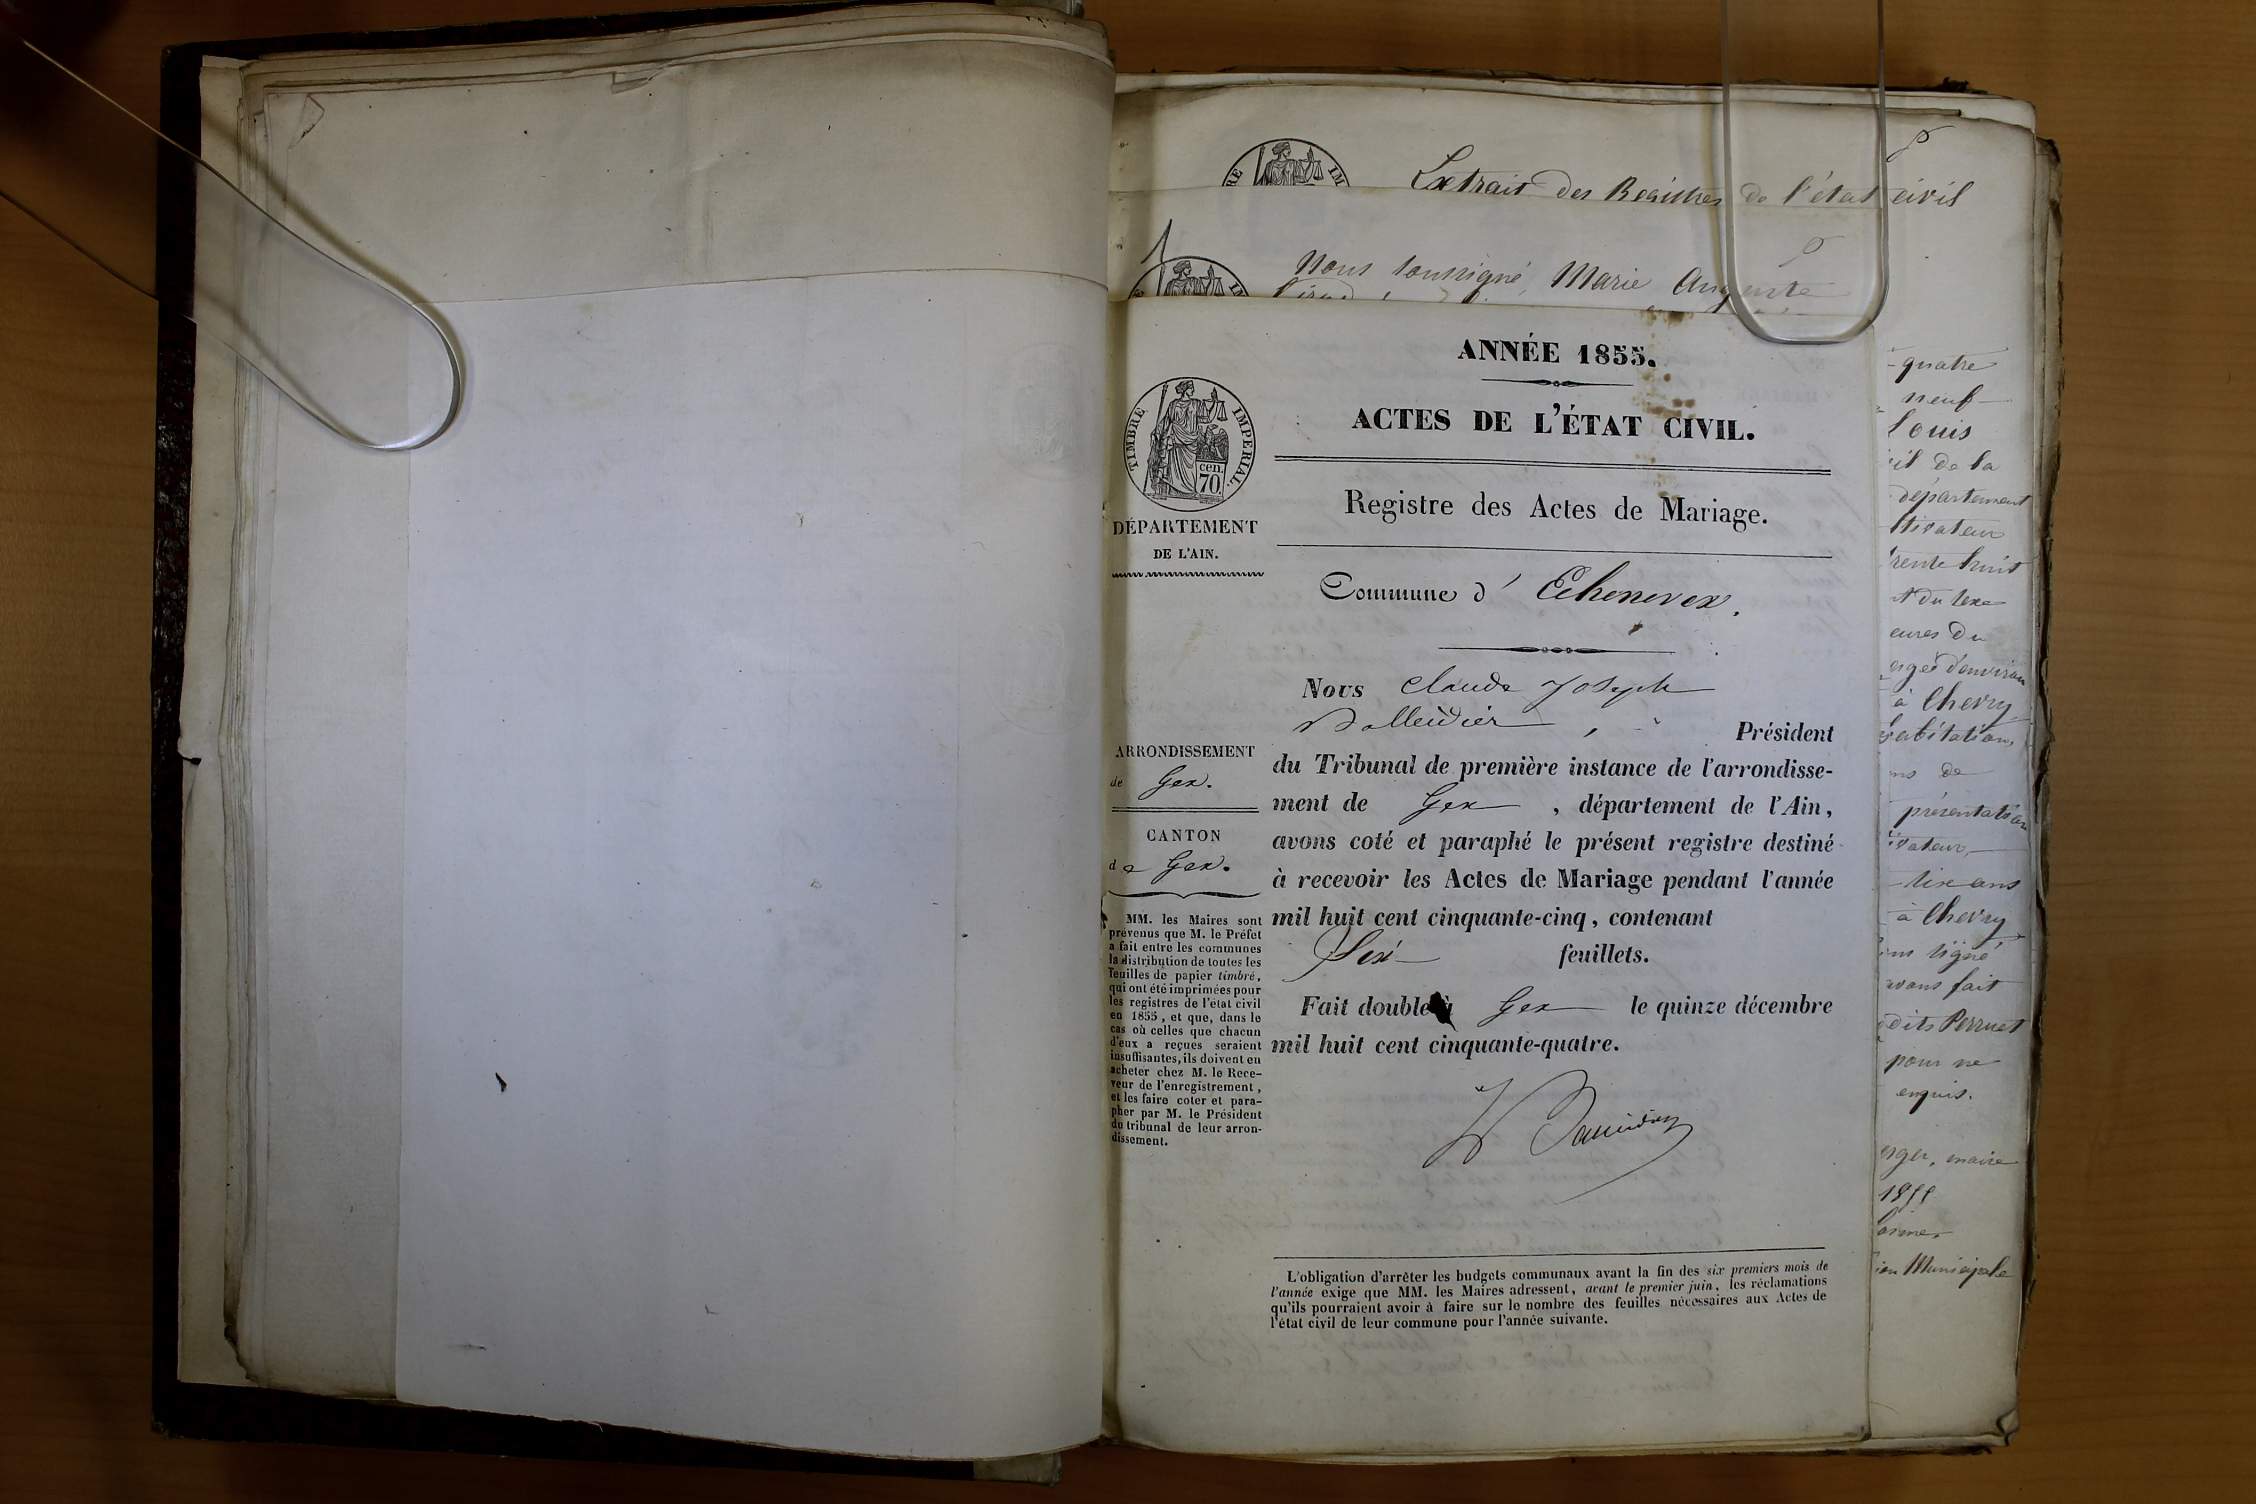 Extrait des Registres de l'état civil
Nous soussigné, Marie Auguste
ANNÉE 1855.
ACTES DE L'ÉTAT CIVIL.
TIMBRE IMPERIAL.
cen.
70
DÉPARTEMENT
DE L'AIN.
Registre des Actes de Mariage.
Commune d' Echenevex.
Nous Claude Joseph
Président
du Tribunal de première instance de l'arrondisse-
ment de Gex, département de l'Ain,
avons coté et paraphé le présent registre destiné
à recevoir les Actes de Mariage pendant l'année
mil huit cent cinquante-cinq, contenant
Six feuillets.
Fait double à Gex le quinze décembre
mil huit cent cinquante-quatre.
ARRONDISSEMENT
de Gex.
CANTON
de Gex.
MM. les Maires sont
prévenus que M. le Préfet
a fait entre les communes
la distribution de toutes les
feuilles de papier timbré,
qui ont été imprimées pour
les registres de l'état civil
en 1855, et que, dans le
cas où celles que chacun
d'eux a reçues seraient
insuffisantes, ils doivent en
acheter chez M. le Rece-
veur de l'enregistrement,
et les faire coter et para-
pher par M. le Président
du tribunal de leur arron-
dissement.
L'obligation d'arrêter les budgets communaux avant la fin des six premiers mois de
l'année exige que MM. les Maires adressent, avant le premier juin, les réclamations
qu'ils pourraient avoir à faire sur le nombre des feuilles nécessaires aux Actes de
l'état civil de leur commune pour l'année suivante.
quatre
neuf
Louis
de la
département
huit
du
à Chevry
habitation,
de
présentation
ans
à Chevry
signé
avons fait
dits Perruet
pour ne
enquis.
maire
1855
Municipale